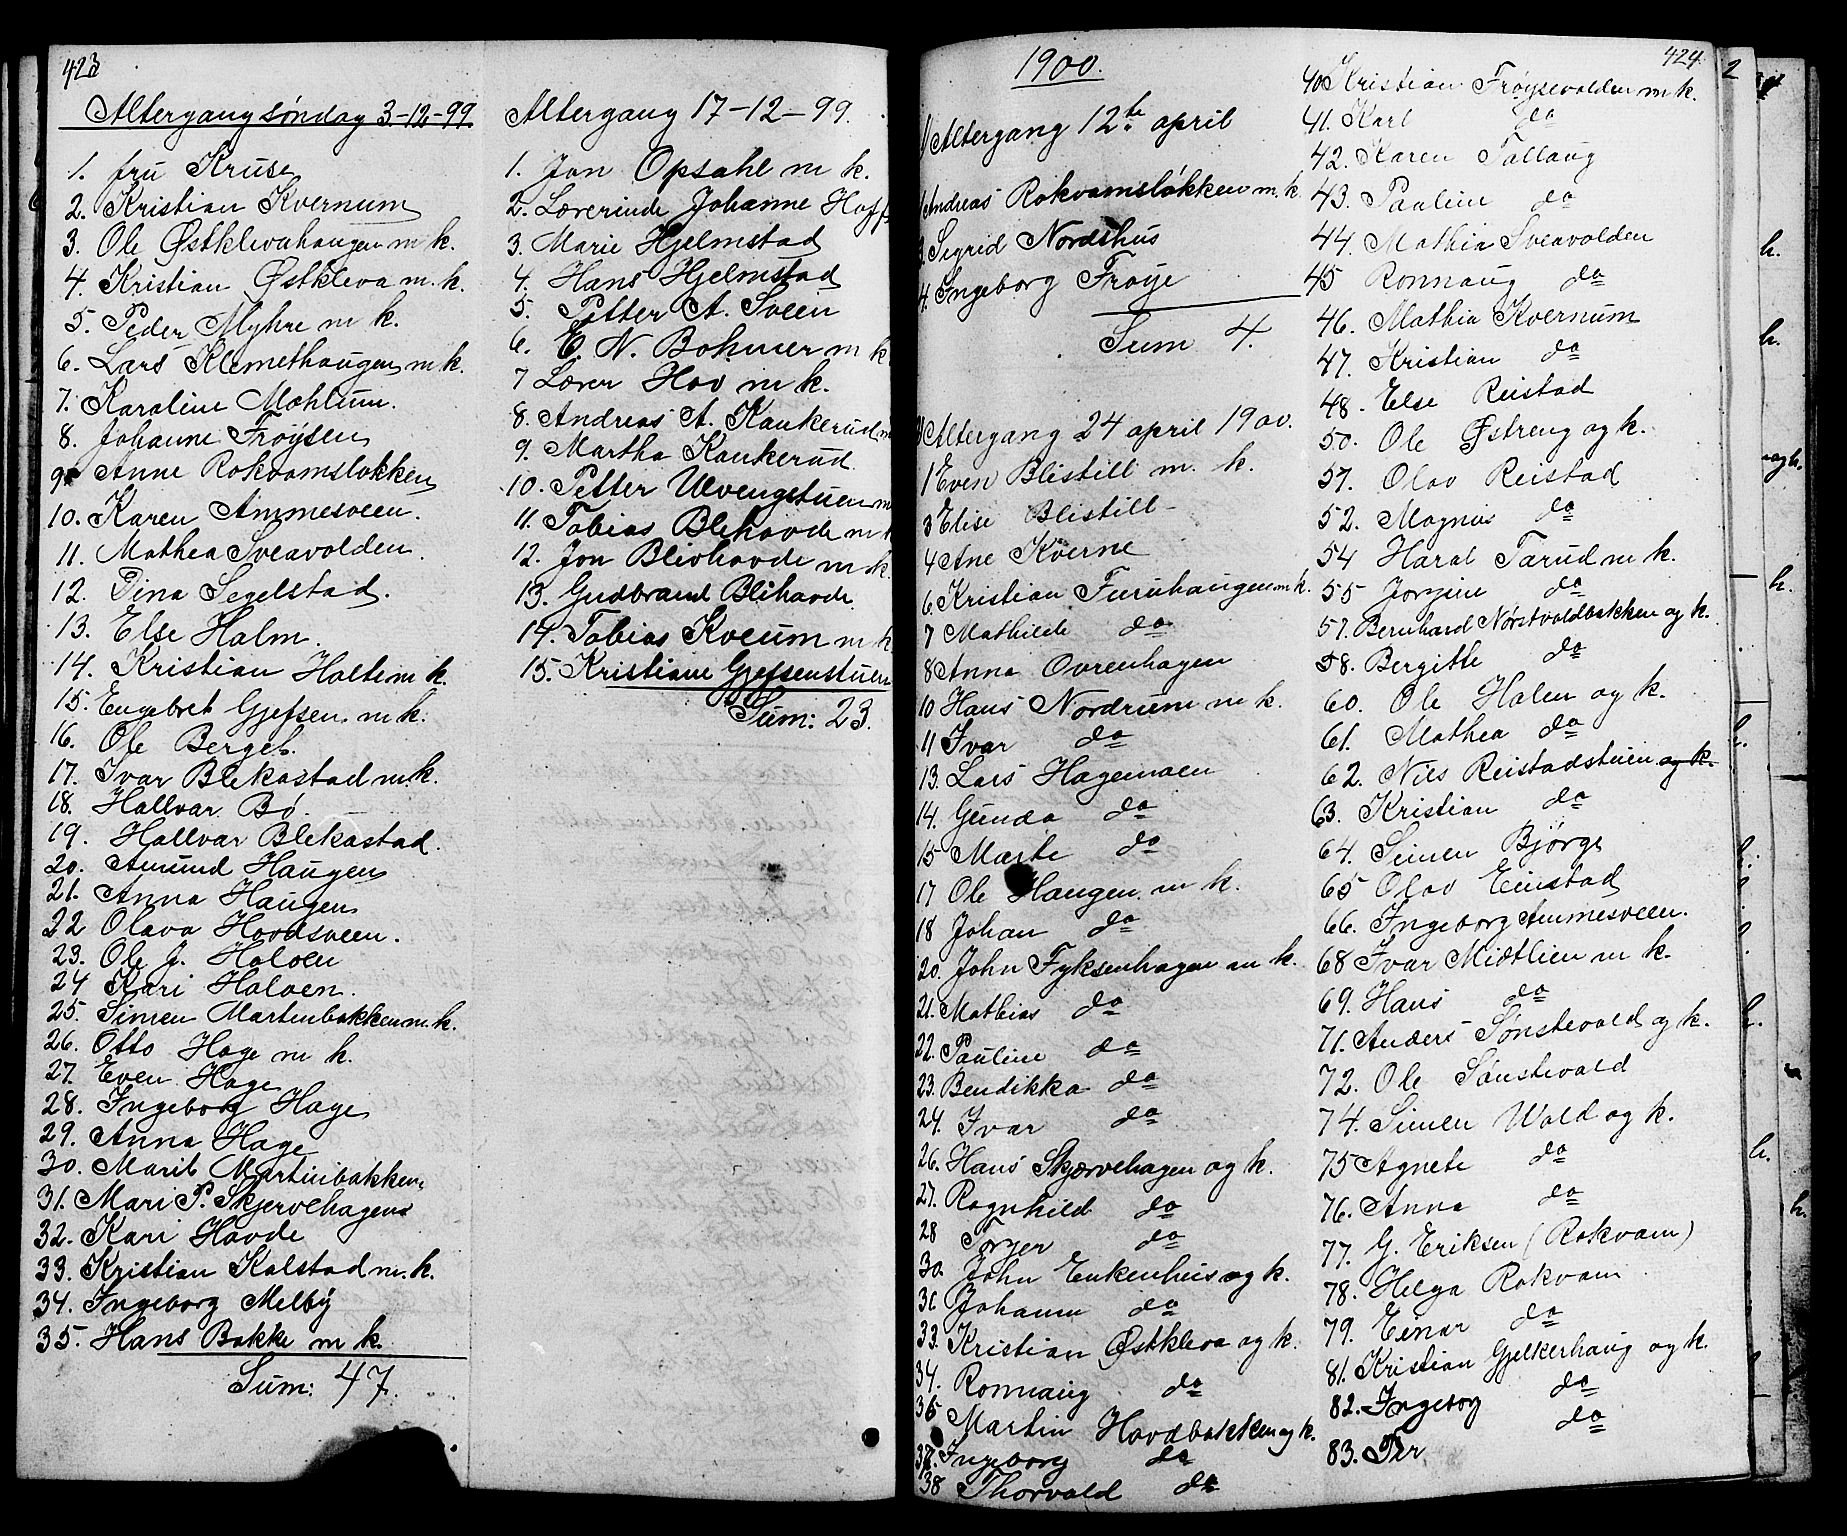 423
Altergang søndag 3-12-99.
1. fru Kruse
2. Kristian Kvernum
3. Ole Østklevahaugen m k.
4. Kristian Østkleva m. k.
5. Peder Myhre m k.
6. Lars Klemethaugen m k.
7. Karoline Mæhlum.
8. Johanne Frøysen
9. Anne Rokvamsløkken
10. Karen Ammesveen.
11. Mathea Sveavolden.
12. Pina Segelstad.
13. Else Holm.
14. Kristian Holte m k.
15. Engebret Gjefsen. m k.
16. Ole Berget.
17. Ivar Blekastad m k.
18. Hallvar Bø.
19. Hallvar Blekastad.
20. Amund Haugen
21. Anna Haugen
22 Olava Hovdsveen.
23. Ole J. Holoen
24 Kari Holoen.
25. Simen Martinbakken m. k.
26. Otto Hage m k.
27. Even Hage
28. Ingeborg Hage
29. Anna Hage
30. Marit Martinbakken
31. Mari P. Skjervehagen
32. Kari Hovde
33. Kristian Kalstad m. k.
34. Ingeborg Melby
35. Hans Bakke m k.
Sum: 47.
Altergang 17-12-99.
1. Jon Opsahl m k.
2. Lærerinde Johanne Hoff
3. Marie Hjelmstad
4. Hans Hjelmstad
5. Petter A. Sveen
6. E. N. Bohmer m k
7 Lærer Hov m k.
8. Andreas A. Kankerud m
9. Martha Kankerud
10. Petter Ulvengstuen m
11. Tobias Blehovde m k
12. Jon Blevhovde m k.
13. Gudbrand Blihovde
14. Tobias Kveum m k
15. Kristiane Gjefsenstuen
Sum: 23.
424.
1900.
Altergang 12te april
Andreas Rokvamsløkken m. k
3. Sigrid Nordshus
4. Ingeborg Frøye
Sum 4.
Altergang 24 april 1900.
1 Even Blistill m. k.
3 Elise Blistill
4 Ane Kverne
6. Kristian Furuhaugen m k.
7 Mathilde do
8 Anna Ovrenhagen
10 Hans Nordrum m k.
11 Ivar do
13. Lars Hagemoen
14. Gunda do
15 Marte do
17 Ole Haugen. m k.
18 Johan do
20. John Fyksenhagen m k.
21. Mathias do
22. Pauline do
23. Bendikka do
24. Ivar do
26. Hans Skjervehagen og k.
27. Ragnhild do
28 Torger do
30. John Enkenhus og k.
31 Johanne do
33. Kristian Østkleva og k.
34. Ronnaug do
36 Martin Hovdbakken og k.
37. Ingeborg do
38 Thorvald do
40 Kristian Frøysevolden m k.
41. Karl do
42. Karen Tollaug
43. Pauline do
44. Mathia Sveavolden
45 Ronnaug do
46. Mathia Kvernum
47. Kristian do
48. Else Reistad
50. Ole Østreng og k.
51. Olav Reistad
52. Magnus do
54 Haral Tarud m k.
55 Jorgine do
57. Bernhard Nørstvoldbakken og k.
58. Bergitte do
60. Ole Holen og k.
61. Mathea do
62. Nils Reistadstuen og k.
63. Kristian do
64. Simen Bjørge
65 Olav Einstad
66. Ingeborg Ammesveen.
68 Ivar Midtlien m k.
69. Hans do
71. Anders Sønstevold og k.
72. Ole Sønstevold
74. Simen Wold og k.
75 Agnete do
76. Anna do
77. G. Eriksen (Rokvam)
78. Helga Rokvam
79. Einar do
81. Kristian Gjelkerhaug og k.
82. Ingeborg do
83. Per do
2
h.
h.
og k.
h.
h.
h.
h.
h.
h.